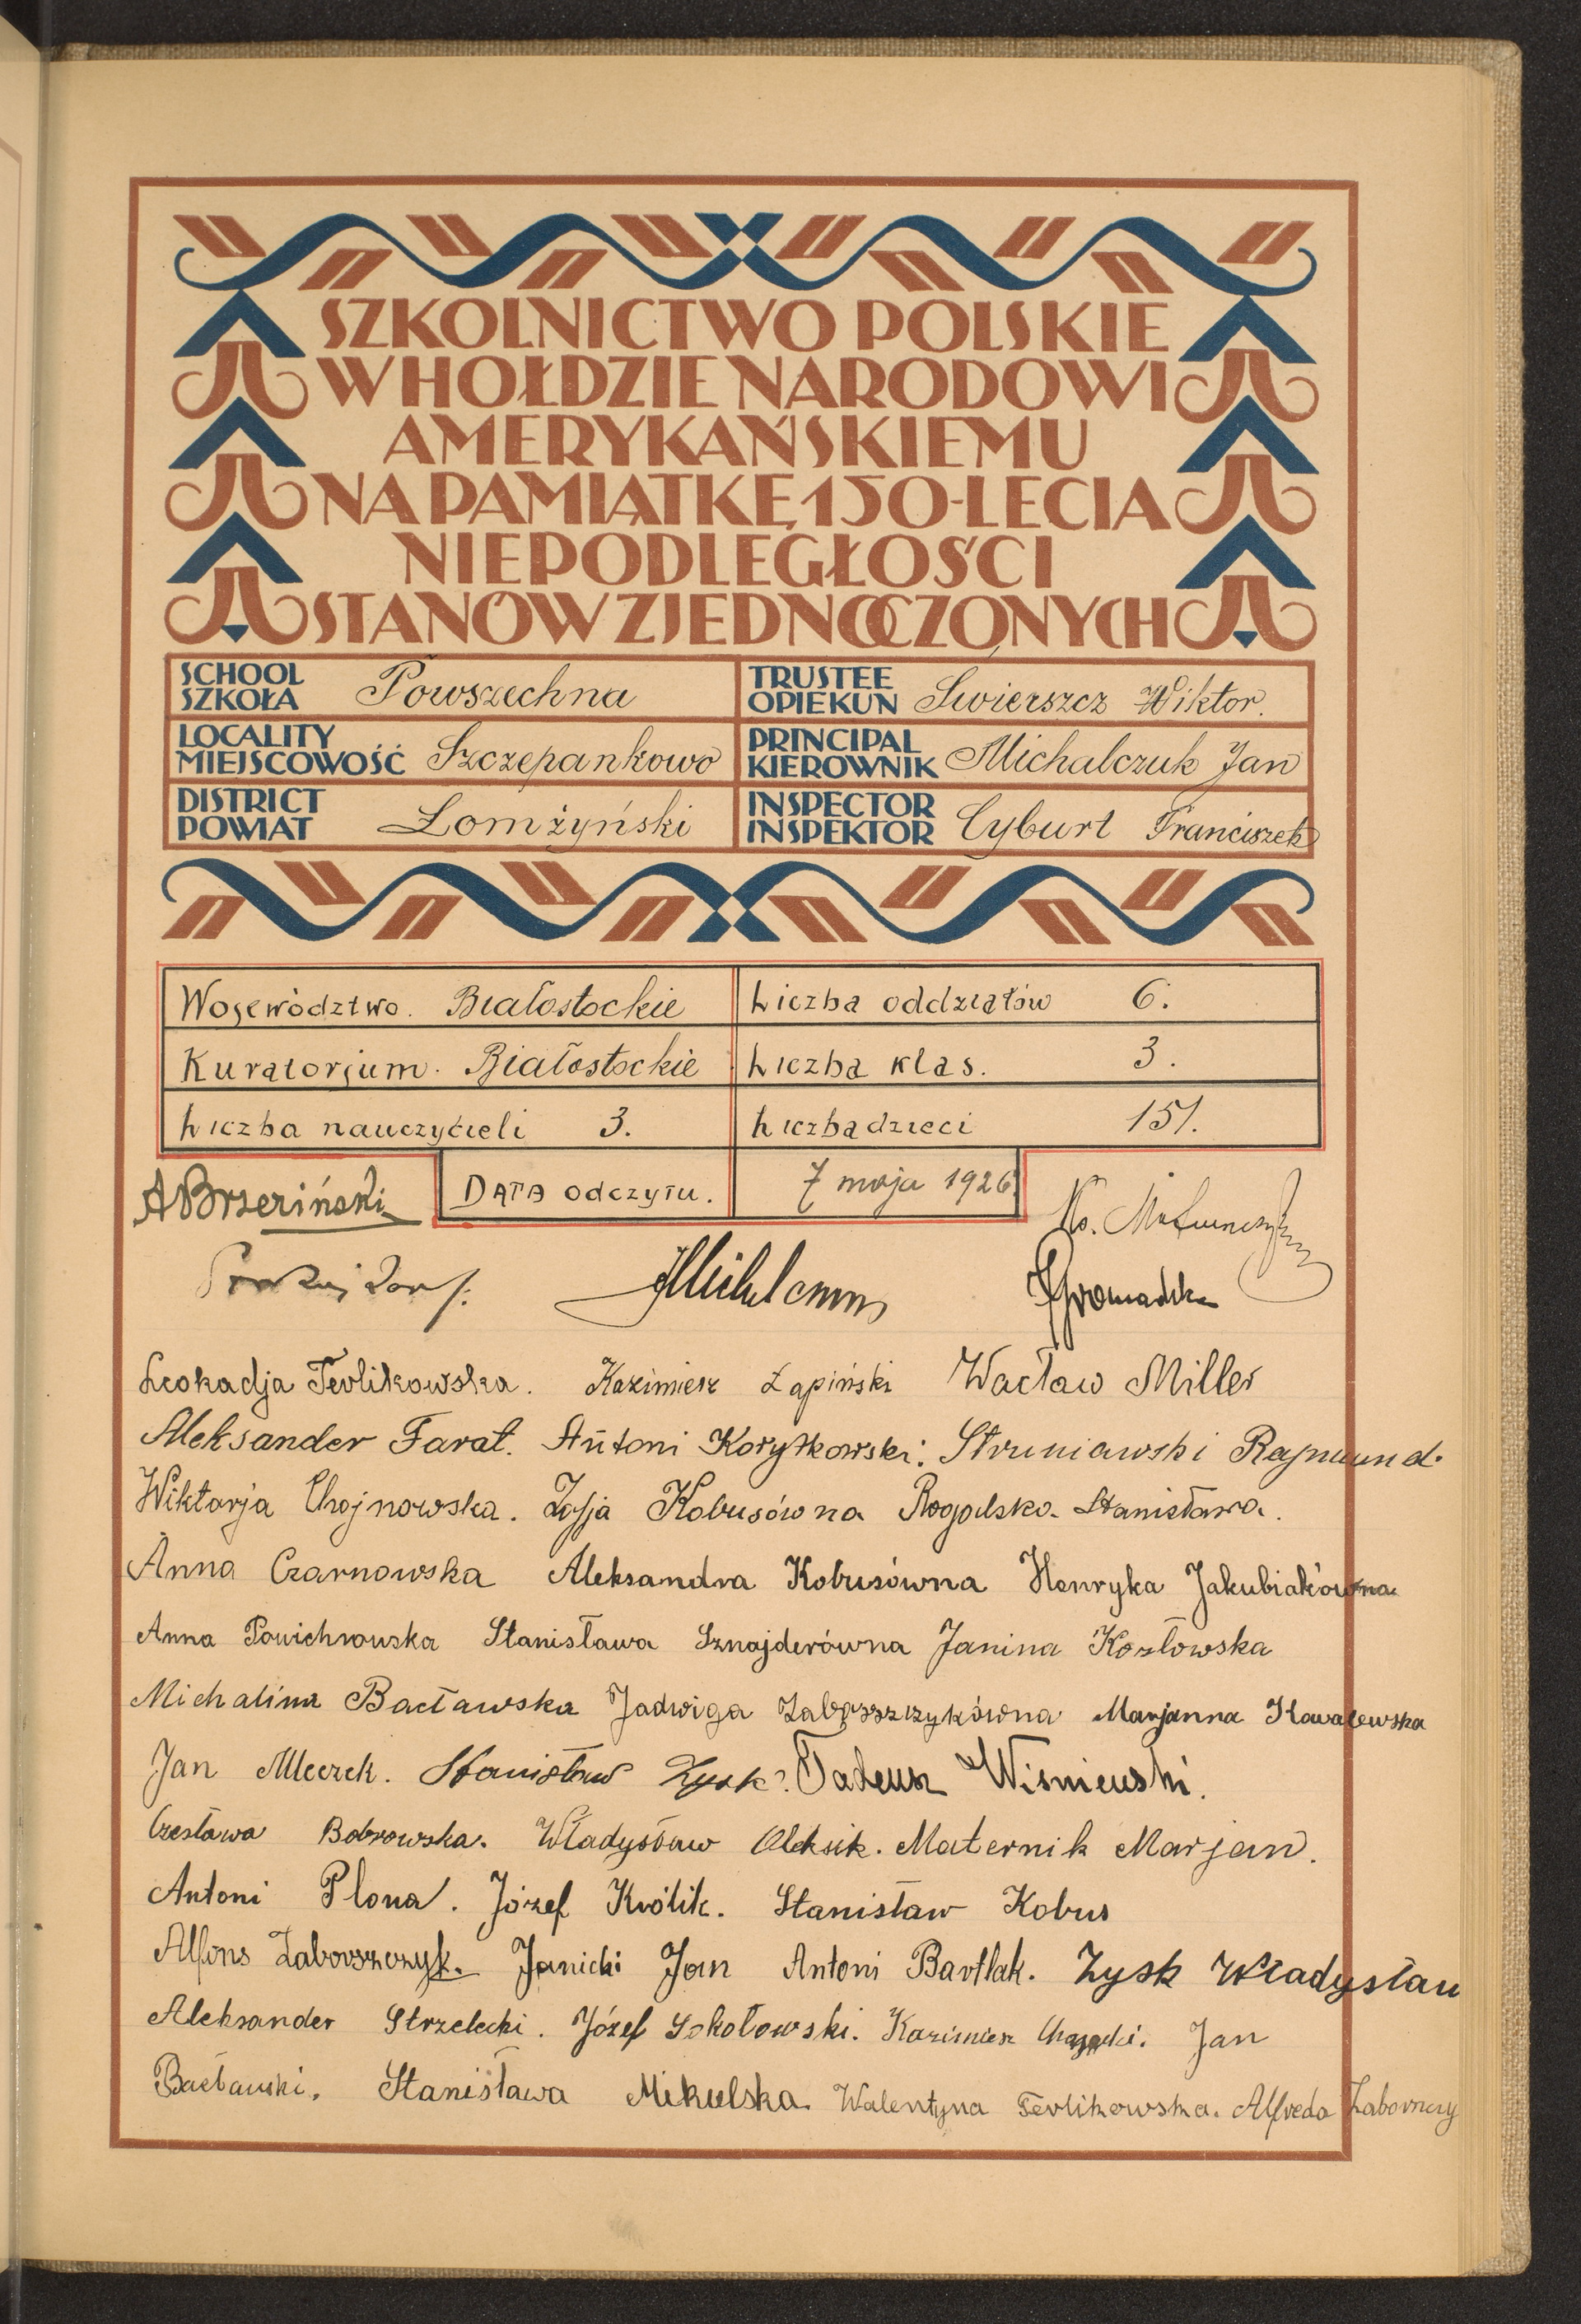 SZKOLNICTWO POLSKIE
W HOŁDZIE NARODOWI
AMERYKAŃSKIEMU
NA PAMIĄTKĘ 150-LECIA
NIEPODLEGŁOŚCI
STANÓW ZJEDNOCZONYCH
SCHOOL
SZKOŁA Powszechna
TRUSTEE
OPIEKUN Swierszcz Wiktor.
LOCALITY
MIEJSCOWOŚĆ Szczepankowo
PRINCIPAL
KIEROWNIK Michalczuk Jan
DISTRICT
POWIAT Łomżyński
INSPECTOR
INSPEKTOR Cyburt Franciszek
Województwo. Białostockie Liczba oddziałów 6.
Kuratorjum. Białostockie Liczba klas. 3.
Liczba nauczycieli 3. Liczba dzieci 151.
Data odczytu. 7 maja 1926
ABrzeziński
Gromadzka
Leokadja Terlikowska. Kazimierz Łapiński Wacław Miller
Aleksander Farat. Antoni Korytkowski. Struniawski Rajmund.
Wiktorja Chojnowska. Zofja Kobusówna Rogalska Stanisława.
Anna Czarnowska Aleksandra Kobusówna Henryka Jakubiakówna
Anna Powichrowska Stanisława Sznajderówna Janina Kozłowska
Michalina Bacławska Jadwiga Zaborszczykówna Marjanna Kowalewska
Jan Mleczek. Stanisław Zysk. Tadeusz Wiśniewski.
Czesława Bobrowska. Władysław Oleksik. Maternik Marjan.
Antoni Plona. Józef Królik. Stanisław Kobus
Alfons Zaborszczyk. Janicki Jan Antoni Bartlak. Zysk Władysław
Aleksander Strzelecki. Józef Sokołowski. Kazimierz Jan
Bacławski. Stanisława Mikulska Walentyna Terlikowska. Alfreda